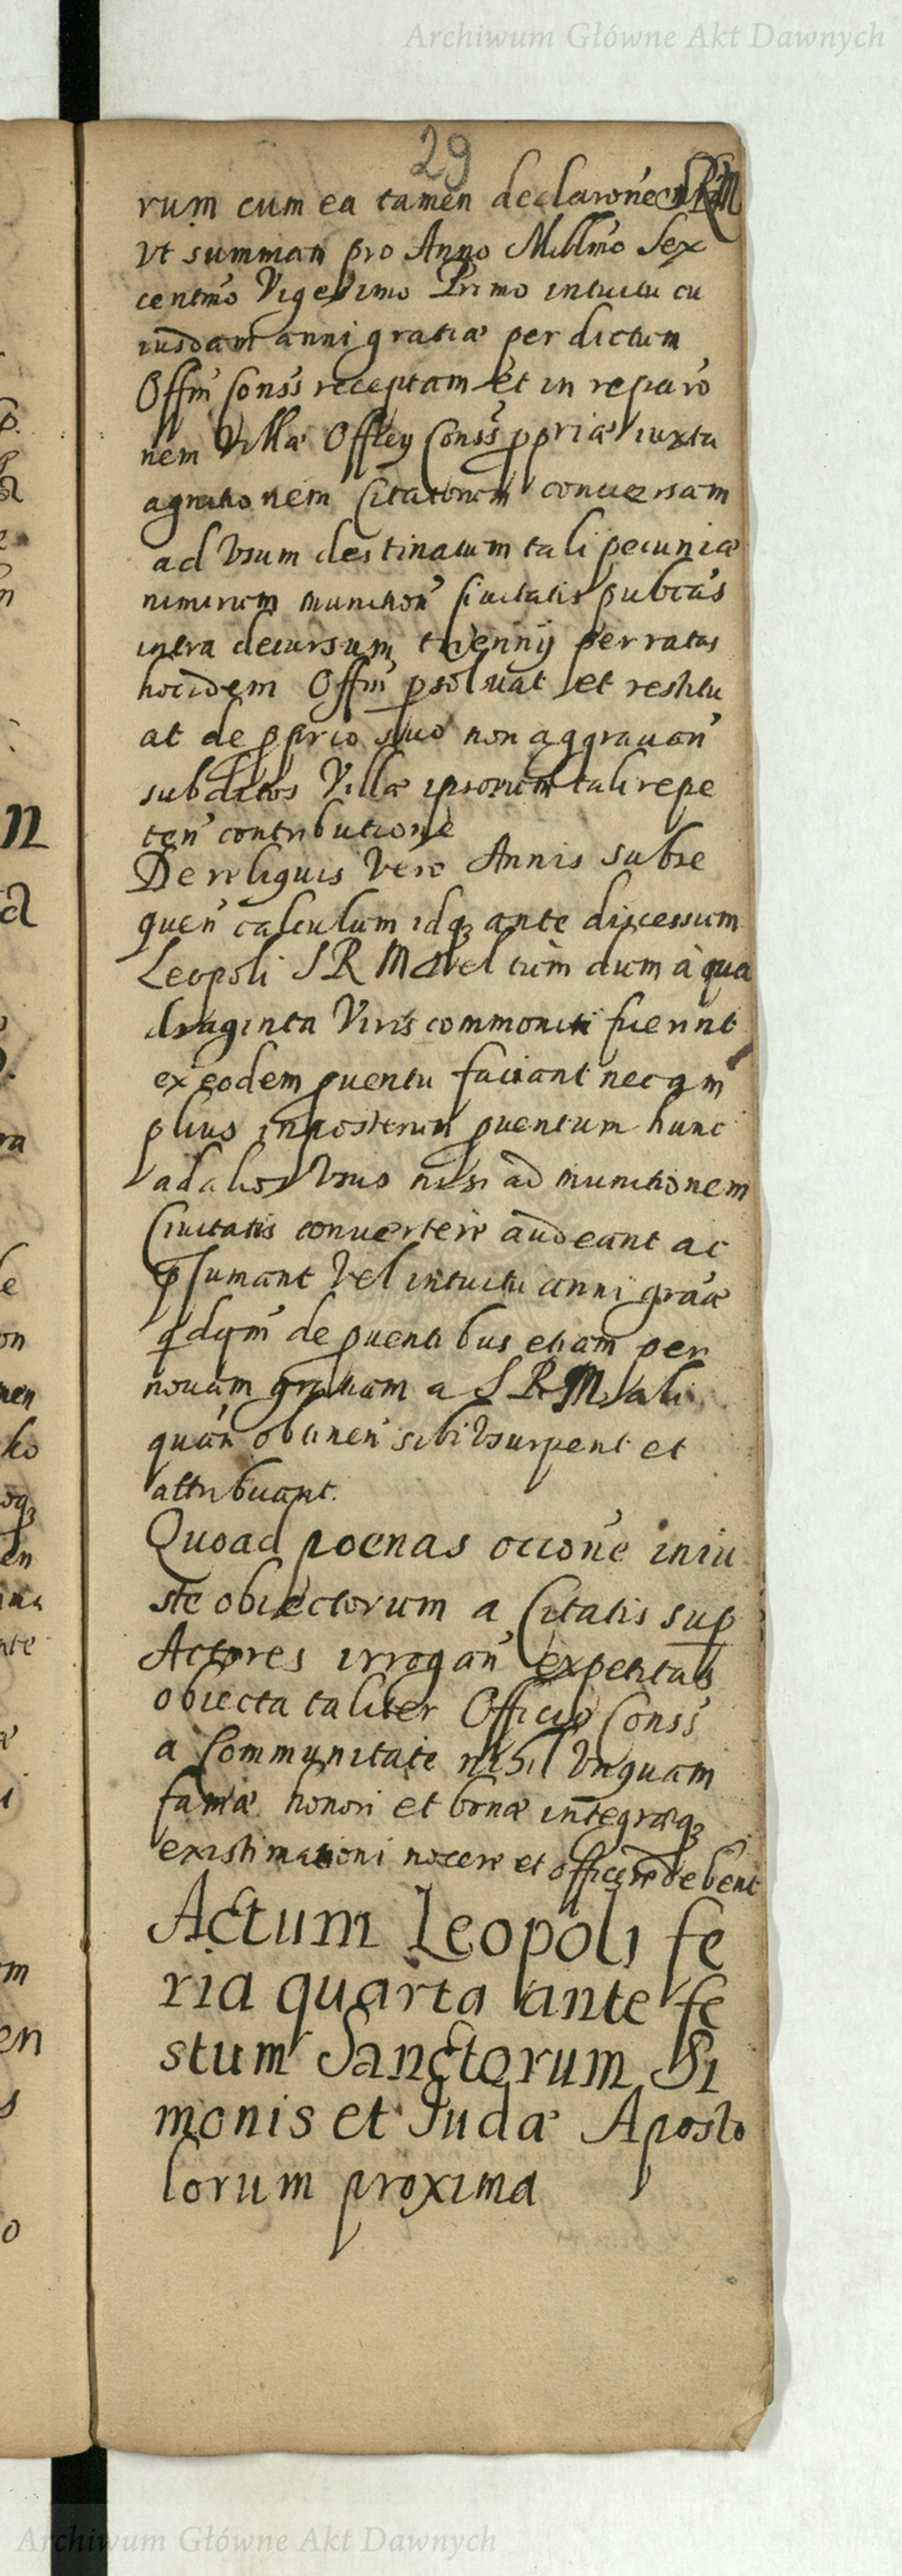 Archiwum Główne Akt Dawnych
29
rum cum ea tamen declarone S R M
Vt summam pro Anno Millmo Sex
centmo Vigesimo Primo intuitu eu
iusdam anni gratiæ per dictum
Offm Conss receptam et in reparo
nem Villæ Offley Conss ppriæ iuxta
agnitionem Citatorum conuersam
ad Vsum destinatum tali pecuniæ
nimirum munition Ciuitatis pubcas
intra decursum trienny per ratas
hocidem Offm psoluat et restitu
at de pprio suo non aggrauan
subditos Villæ ipsorum tali repe
ten contributione
De reliquis Vero Annis subse
quen calculum idq ante discessum
Leopoli S R M Vel tum dum à qua
draginta Viris commoniti fuerint
ex eodem puentu faciant nec am
plius inposterum puentum hunc
ad alios Vsus nisi ad munitionem
Ciuitatis conuertere audeant ac
psumant Vel intuitu anni graæ
qdqm de puentibus etiam per
nouam gratiam a S R M ali
quan obtinen sibi Vsurpent et
attribuant.
Quoad poenas occone iniu
ste obiectorum a Citatis sup
Actores irrogan expetitas
obiecta taliter Officio Conss
a Communitate nihil Vnquam
famæ honori et bonæ integræq
existimationi nocere et officere debent
Actum Leopoli fe
ria quarta ante fe
stum Sanctorum Si
monis et Iudæ Aposto
lorum proxima
Archiwum Główne Akt Dawnych